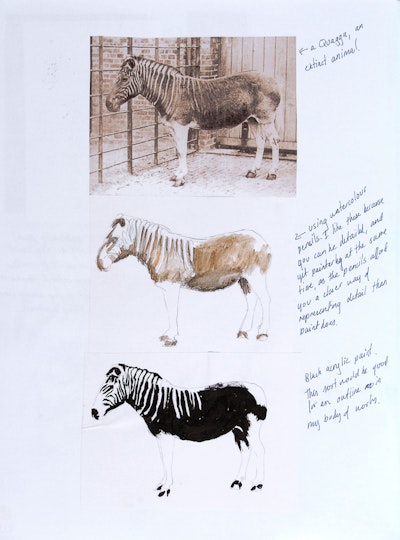 ← a Quagga, an
extinct animal.
← using watercolour
pencils. I like these because
you can be detailed, and
yet painterly at the same
time, as the pencils afford
you a clear way of
representing detail than
paint does.
Black acrylic paint.
This sort would be good
for an outline in
my body of works.